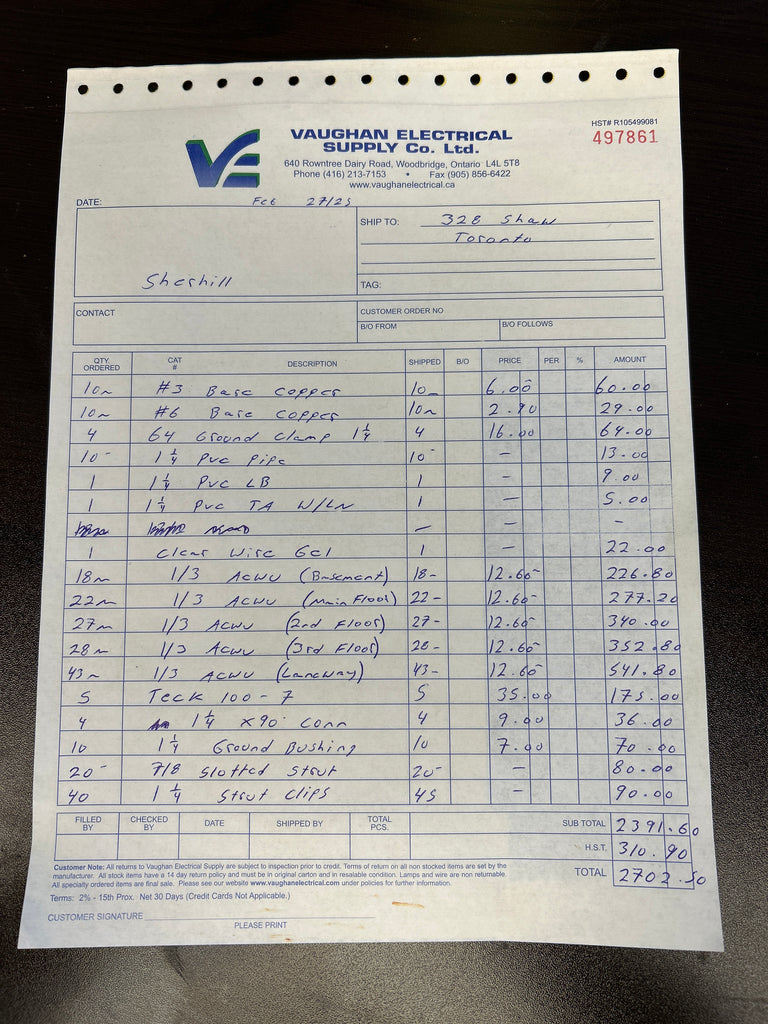 HST# R105499081
497861
VE
VAUGHAN ELECTRICAL
SUPPLY Co. Ltd.
640 Rowntree Dairy Road, Woodbridge, Ontario L4L 5T8
Phone (416) 213-7153 • Fax (905) 856-6422
www.vaughanelectrical.ca
DATE: Feb 27/25
SHIP TO: 328 Shaw
Toronto
Sherhill
TAG:
CONTACT
CUSTOMER ORDER NO
B/O FROM B/O FOLLOWS
QTY. ORDERED CAT # DESCRIPTION SHIPPED B/O PRICE PER % AMOUNT
10m #3 Bare Copper 10m 6.00 60.00
10m #6 Bare Copper 10m 2.90 29.00
4 64 Ground Clamp 1 1/4 4 16.00 64.00
10' 1 1/4 PVC Pipe 10' — 13.00
1 1 1/4 PVC LB 1 — 9.00
1 1 1/4 PVC TA W/LN 1 — 5.00
— — -
1 Clear Wire Gel 1 — 22.00
18m 1/3 ACWU (Basement) 18- 12.60 226.80
22m 1/3 ACWU (Main Floor) 22- 12.60 277.20
27m 1/3 ACWU (2nd Floor) 27- 12.60 340.00
28m 1/3 ACWU (3rd Floor) 28- 12.60 352.80
43m 1/3 ACWU (Laneway) 43- 12.60 541.80
5 Teck 100-7 5 35.00 175.00
4 1 1/4 x 90° Conn 4 9.00 36.00
10 1 1/4 Ground Bushing 10 7.00 70.00
20' 7/8 Slotted Strut 20' — 80.00
40 1 1/4 Strut Clips 45 — 90.00
FILLED BY CHECKED BY DATE SHIPPED BY TOTAL PCS.
SUB TOTAL 2391.60
H.S.T. 310.90
TOTAL 2702.50
Customer Note: All returns to Vaughan Electrical Supply are subject to inspection prior to credit. Terms of return on all non stocked items are set by the
manufacturer. All stock items have a 14 day return policy and must be in original carton and in resalable condition. Lamps and wire are non returnable.
All specialty ordered items are final sale. Please see our website www.vaughanelectrical.com under policies for further information.
Terms: 2% - 15th Prox. Net 30 Days (Credit Cards Not Applicable.)
CUSTOMER SIGNATURE
PLEASE PRINT